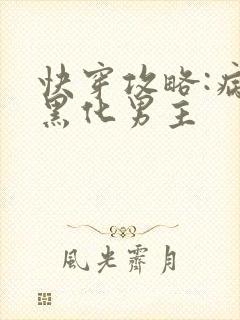 快穿攻略:病
黑化男主
風光霽月